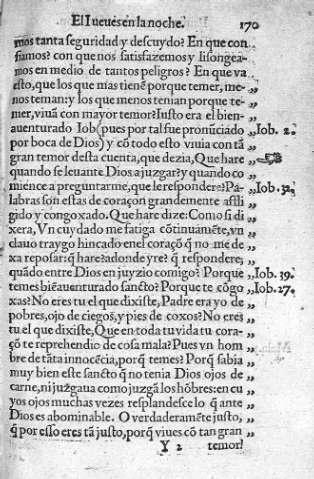 El Iueues en la noche. 170
mos tanta seguridad y descuydo? En que con
fiamos? con que nos satisfazemos y lisongea-
mos en medio de tantos peligros? En que va
esto, que los que mías tienẽ porque temer, me-
nos teman: y los que menos tenian porque te-
mer, viuã con mayor temor? Iusto era el bien-
auenturado Iob (pues por tal fue pronũciado ,, Iob. 2.
por boca de Dios) y cõ todo esto viuia con tã
gran temor desta cuenta, que dezia, Que hare ,,
quando se leuante Dios a juzgar? y quando co ,,
mience a preguntarme, que le respondere? Pa- ,, Iob. 32,
labras son estas de coraçon grandemente astli ,,
gido y congoxado. Que hare dize: Como si di ,,
xera, Vn cuydado me fatiga cõtinuamẽte, vn ,,
clauo traygo hincado en el coraçõ q̃ no me de ,,
xa reposar: q̃ hare? adonde yre? q̃ respondere, ,,
quãdo entre Dios en juyzio comigo? Porque ,, Iob. 39.
temes biẽauenturado sancto? Porque te cõgo ,, Iob. 27.
xas? No eres tu el que dixiste, Padre era yo de ,,
pobres, ojo de ciegos, y pies de coxos? No eres ,,
tu el que dixiste, Que en toda tu vida tu cora- ,,
çõ te reprehendio de cosa mala? Pues vn hom ,,
bre de tãta innocẽcia, porq̃ temes? Porq̃ sabia ,,
muy bien este sancto q̃ no tenia Dios ojos de ,,
carne, ni juzgaua como juzgã los hõbres: en cu ,,
yos ojos muchas vezes resplandesce lo q̃ ante ,,
Dios es abominable. O verdaderamẽte justo, ,,
q̃ por esso eres tã justo, porq̃ viues cõ tan gran ,,
Y 2 temor!